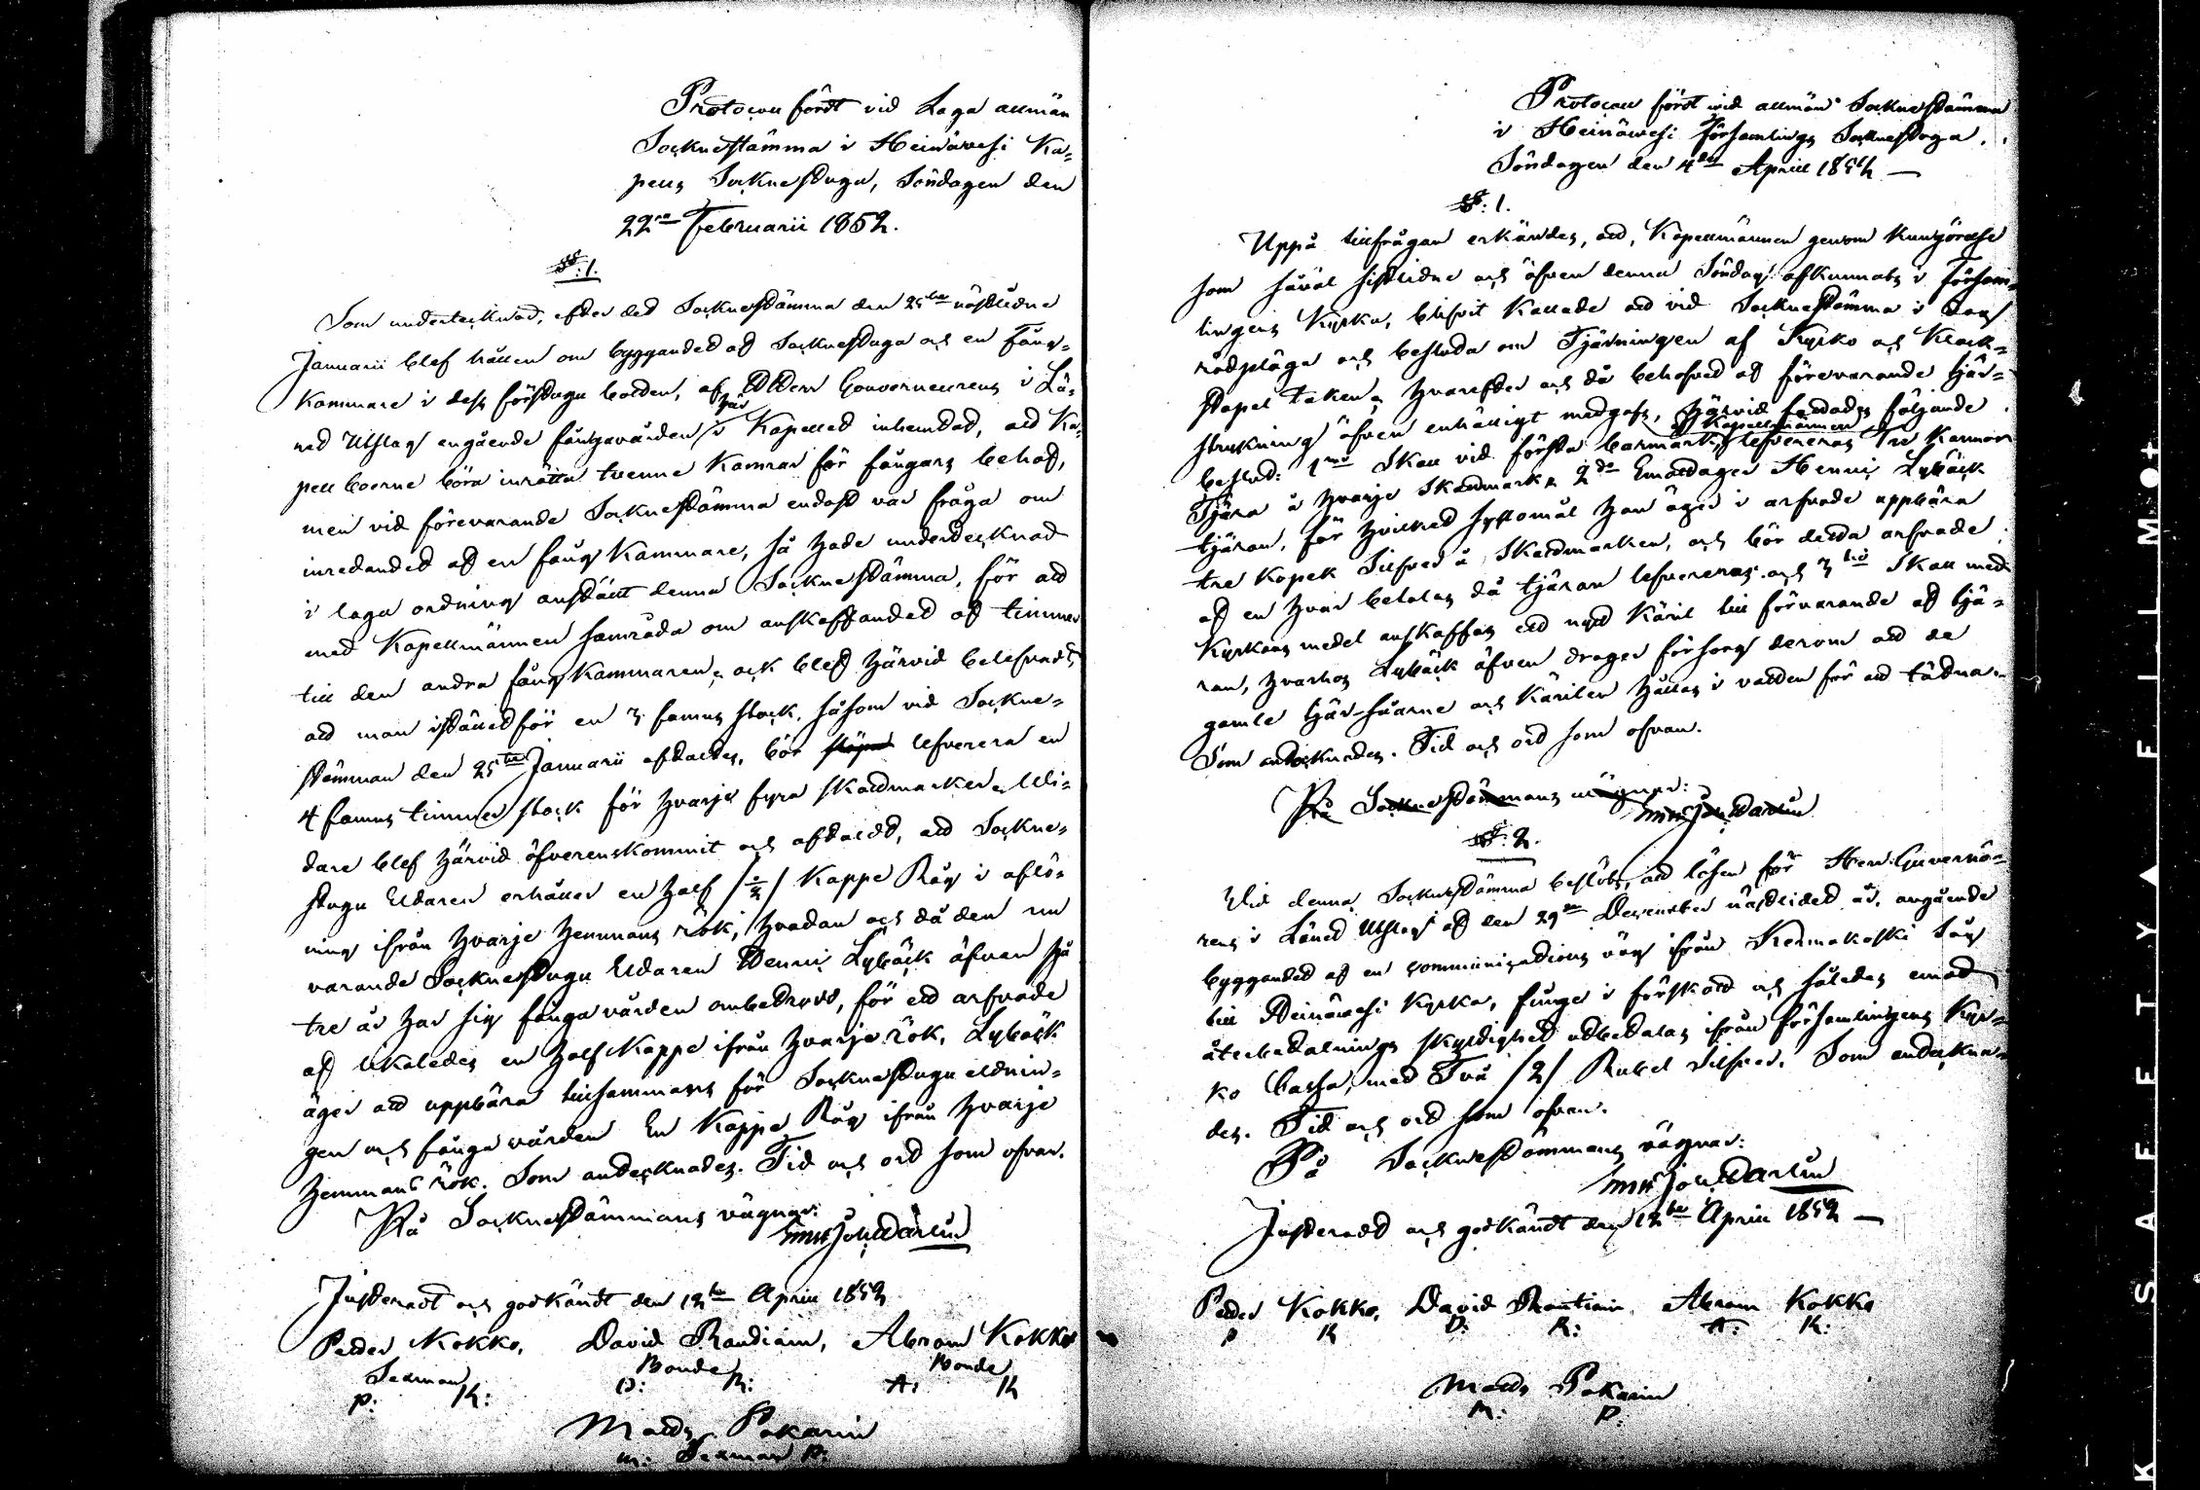 Protocoll fördt vid Laga allmän
Socknestämma i Heinäwesi Ka-
pells Socknestuga, Söndagen den
22ra Februarii 1852.
§§: 1.
Som undertecknad, efter det Socknestämma den 25te nästledne
Januarii blef hållen om byggandet af Socknestuga och en Fång-
kammare i dess förstugu botten, af Herr Gouverneurens i Lä-
net Utslag angående fångavården här i Kapellet inhemtat, att Ka-
pell boerne böra inrätta tvenne kamrar för fångars behof,
men vid förevarande Socknestämma endast var fråga om
inredandet af en fång kammare, så hade undertecknad
i laga ordning anstält denna Socknestämma, för att
med Kapellmännen samråda om anskaffandet af timmer
till den andra fång kammaren, och blef härvid belefvadt
att man istället för en 3 famns stock, såsom vid Sockne-
stämman den 25te Januarii aftaltes, bör lefverera en
4 famns timmer stock för hvarje fyra skattmarker. Vi-
dare blef härvid öfverenskommit och aftaldt, att Sockne-
stugu Eldaren erhåller en half /½/ Kappe Råg i aflö-
ning ifrån hvarje hemmans rök, hvadan och då den nu
varande Sockenstugu Eldaren Henric Lybäck äfven på
tre år har sig fångavården ombetrott, för ett arfvode
af likaledes en half Kappe ifrån hvarje rök, Lybäck
äger att uppbära tillsammans för Socknestugu eldnin-
gen och fångavården En Kappe Råg ifrån hvarje
hemmans rök. Som antecknades. Tid och ort som ofvan.
På Socknestämmans vägnar:
Justeradt och godkändt den 12te Aprill 1852
Petter Kokko, David Rantiain, Abram Kokko
Sexman Bonde Bonde
P: K: D: R: A: K
Matts Pakarin
M: Sexman P:
Protocoll fördt vid allmän Socknestämma
i Heinäwesi Församlings Socknestuga,
Söndagen den 4de Aprill 1852 —
§§: 1.
Uppå tillfrågan erkändes, att, Kapellmännen genom kungörelse
som såväl sistledne och äfven denna Söndag afkunnats i Försam-
lingens Kyrka, blifvit kallade att vid Socknestämma i dag
rådpläga och besluta om Tjärningen af Kyrko och Klock-
stapel taken, hvarefter och då behofvet af förevarande tjär-
strykning äfven enhälligt medgafs, härvid fattades följande
beslut: 1mo Skall vid första barmark, af Kapellmännen lefvereras Tre Kannor
Tjära å hvarje Skattmark, 2do Emottager Henric Lybäck
tjäran, för hvilket sysslomål han äger i arfvode uppbära
tre kopek Silfver å Skattmarken, och bör detta arfvode
af en hvar betalas då tjäran lefvereras, och 3tio Skall med
Kyrkans medel anskaffas ett nytt käril till förvarande af tjä-
ran, hvarhos Lybäck äfven drager försorg derom att de
gamle tjär-såarne och kärilen hållas i vatten för att tätna.
Som antecknades. Tid och ort som ofvan.
På Socknestämmans vägnar:
§§: 2.
Vid denna Socknestämma beslöts, att lösen för Herr Guvernö-
rens i Länet Utslag af den 29de December nästledet år, angående
byggandet af en communications väg ifrån Kermakoski Såg
till Heinäwesi Kyrka, fungi i förskott och således emot
återbetalnings skyldighet utbetalas ifrån församlingens Kyr-
ko Cassa, med Två /2/ Rubel Silfver. Som antecknas-
des. Tid och ort som ofvan.
På Socknestämmans vägnar:
Justeradt och godkändt den 12te Aprill 1852 —
Petter Kokko, David Rantiain, Abram Kokko
P K D: R: A: K:
Matts Pakarin
M: P:
K SAFETY ▲ FILM